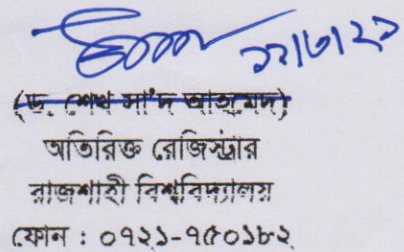 ২২/৩/২১
(ড. শেখ সা'দ আহমেদ)
অতিরিক্ত রেজিস্ট্রার
রাজশাহী বিশ্ববিদ্যালয়
ফোন : ০৭২১-৭৫০১৮২